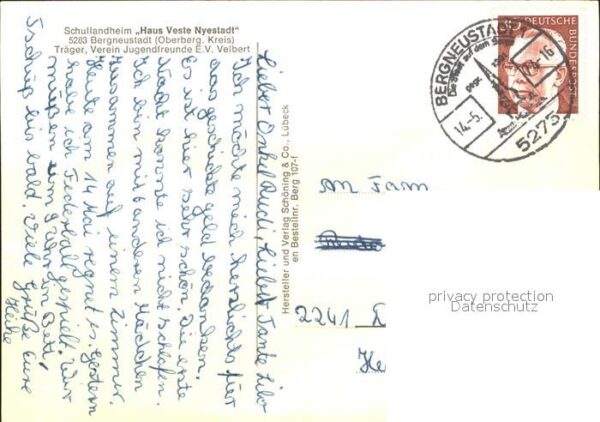 Schullandheim „Haus Veste Nyestadt"
5283 Bergneustadt (Oberberg. Kreis)
Träger, Verein Jugendfreunde E.V. Velbert
Lieber Onkel Rudi, Liebe Tante Lilo
Ich möchte mich herzlichts für
das geschickte geld bedanken.
Es ist hier sehr schön. Die erste
Nacht konnte ich nicht schlafen.
Ich bin mit 6 anderen Mädchen
zusammen auf einem Zimmer.
Heute am 14 Mai regnet es. Gestern
habe ich Federball gespielt. Wir
müßen um 9 Uhr in Bett.
Tschüß bis bald. Viele Grüße Eure
Heike
Hersteller und Verlag Schöning & Co., Lübeck
en Bestellnr. Berg 107-1
DEUTSCHE
BUNDESPOST
BERGNEUSTADT
Die Stadt auf dem Berge
gegr.
14.-5.
-16
5275
An Fam
2241
He
privacy protection
Datenschutz